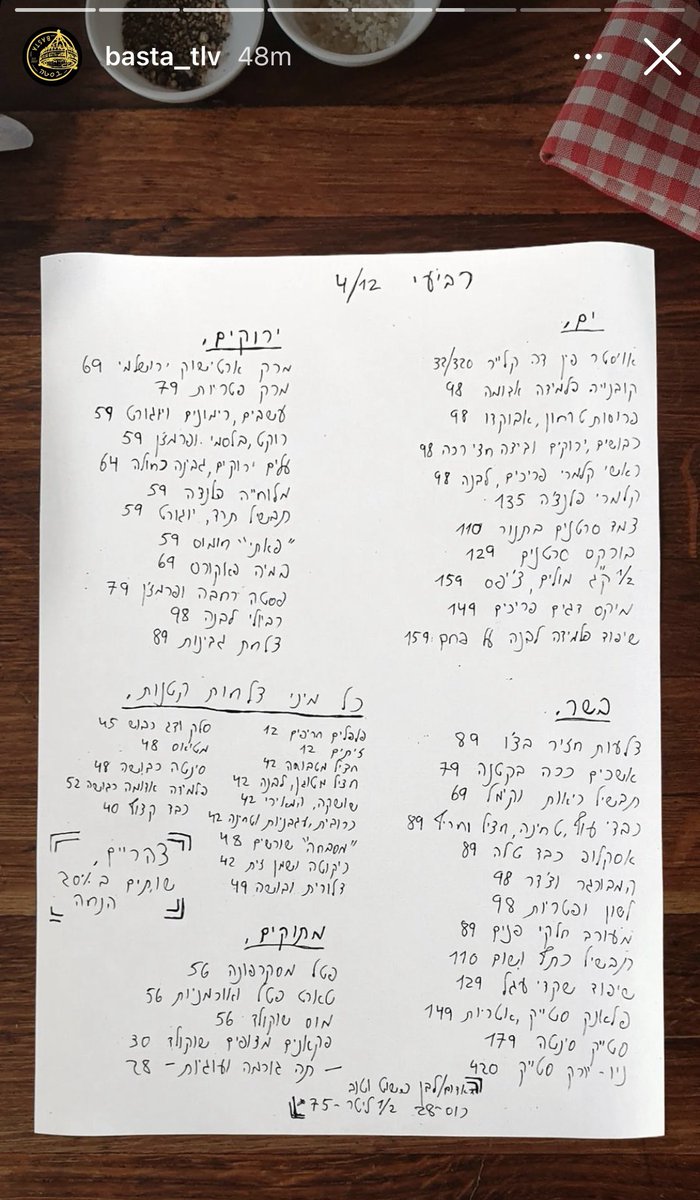 basta_tlv 48m
רביעי 4/12
ים.
אויסטר פין דה קלייר 32/320
קובנייה פלמידה אבומה 98
פרוסות טרחון, אבוקדו 98
כבושים, ירוקים וביצה חצי רכה 98
ראשי קלמרי פריכים, לבנה 98
קלמרי פלנצ'ה 135
צמד סרטנים בתנור 110
בורקס סרטנים 129
1/2 ק"ג מולים, צ'יפס 159
מיקס דגים פריכים 149
שיפוד פלמידה לבנה על פחם 159
ירוקים.
מרק ארטישוק ירושלמי 69
מרק פטריות 79
עשבים, רימונים ויוגורט 59
רוקט, בלסמי ופרמצן 59
עלים ירוקים, גבינה כחולה 64
מלוחייה פלנדה 59
תבשיל תרד, יוגורט 59
"פאתי" חומוס 59
במיה פאקורס 69
פסטה רחבה ופרמז'ן 79
רביולי לבנה 98
צלחת גבינות 89
בשר.
צלעות חזיר בצ'ו 89
אשכים ככה בקטנה 79
תבשיל ריאות וקימל 69
כבדי עוף, טחינה, חציל וחריף 89
אסקלופ כבד טלה 89
המבורגר וצ'דר 98
לשון ופטריות 98
מעורב חלקי פנים 89
תבשיל כתף ושום 110
שיפוד שקדי עגל 129
פלאנק סטייק, אטריות 149
סטייק סינטה 179
ניו-יורק סטייק 420
כל מיני צלחות קטנות.
פלפלים חריפים 12
זיתים 12
חציל מטבוחה 42
חציל מטוגן, לבנה 42
שושקה, המאירי 42
כרובית, עגבניות וטחינה 42
"מסבחה" שורשים 48
ריקוטה ושמן זית 42
דלורית ובושה 49
סלק ודג כבוש 45
מטיאס 48
סינטה כבושה 48
פלמידה אדומה כבושה 52
כבד קצוץ 40
צהריים,
שותים ב
הנחה
מתוקים.
פטל מסקרפונה 56
טארט פטל ואוכמניות 56
מוס שוקולד 56
פקאנים מצופים שוקולד 30
– תה גורמה ועוגיות – 28
אדום/לבן פשוט וטוב
כוס-28 1/2 ליטר-75